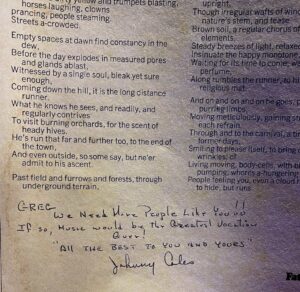 yellow and trumpets blasting,
horses laughing, clowns
prancing, people steaming.
Streets a-crowded.
Empty spaces at dawn find constancy in the
dew,
Before the day explodes in measured pores
and glands ablast,
Witnessed by a single soul, bleak yet sure
enough,
Coming down the hill, it is the long distance
runner.
What he knows he sees, and readily, and
regularly contrives
To visit burning orchards, for the scent of
heady hives.
He's run that far and further too, to the end of
the town,
And even outside, so some say, but ne'er
admit to his ascent.
Past field and furrows and forests, through
underground terrain.
upright.
Though irregular wafts of wind
nature's stem, and tease
Briar soul, a regular chorus of
elements.
Steady breezes of light, relaxe
Insinuate the happy monotone
Waiting for its time to come, w
perfume.
Along rumbles the runner, to its
religious mat.
And on and on and on he goes,
purring limps,
Moving meticulously, gaining s
each refrain.
Through and to the carnival, a t
former days.
Smiling to please itself, to bring
wrinkles, of
Living moving, body-cells, with
pumping, whorls a-hungering
People feeling you, even a cloud
to hide, but runs
GREG
We Need More People Like You!!
If so, Music would be the Greatest Vocation
Ever!
"All the Best to You and Yours"
Johnny Coles
Fat